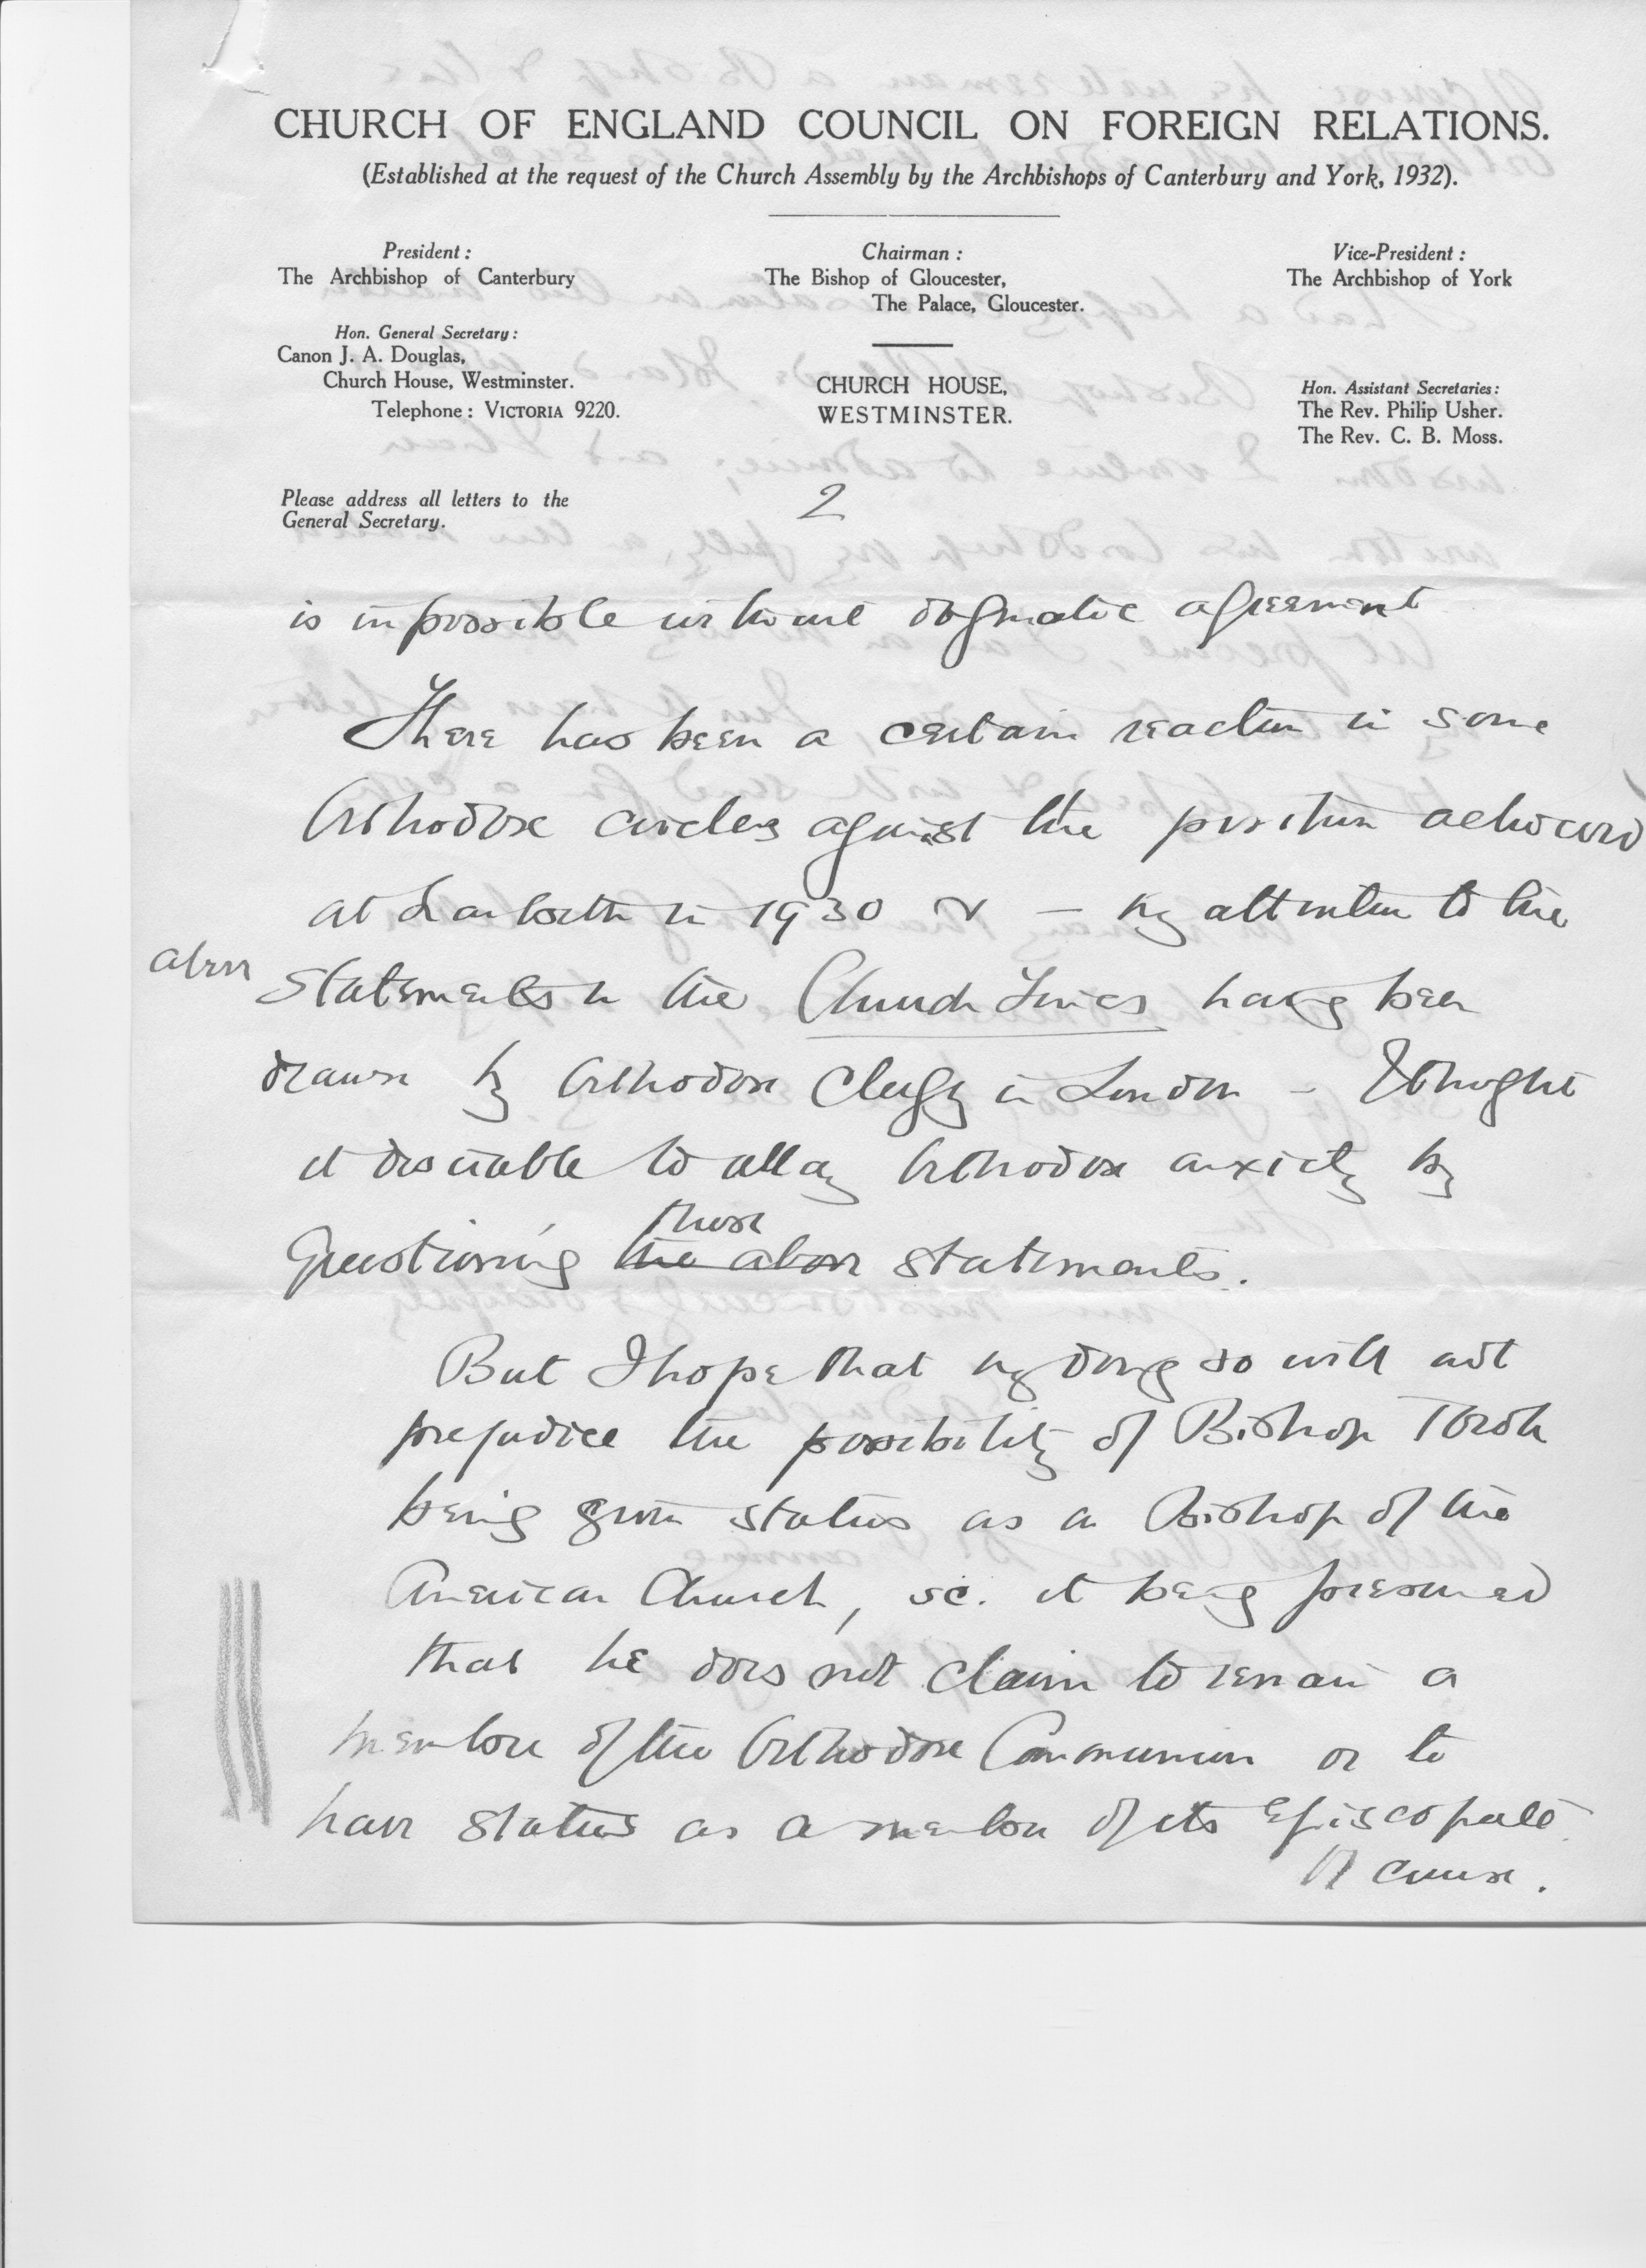 CHURCH OF ENGLAND COUNCIL ON FOREIGN RELATIONS.
(Established at the request of the Church Assembly by the Archbishops of Canterbury and York, 1932).
President :
The Archbishop of Canterbury
Hon. General Secretary :
Canon J. A. Douglas,
Church House, Westminster.
Telephone : VICTORIA 9220.
Please address all letters to the
General Secretary.
Chairman :
The Bishop of Gloucester,
The Palace, Gloucester.
CHURCH HOUSE,
WESTMINSTER.
Vice-President :
The Archbishop of York
Hon. Assistant Secretaries :
The Rev. Philip Usher.
The Rev. C. B. Moss.
2
is impossible without dogmatic agreement
There has been a certain reaction in some
Orthodox circles against the position achieved
at Lambeth in 1930 & — my attention to the
above statements in the Church Times having been
drawn by Orthodox Clergy in London – I thought
it desirable to allay Orthodox anxiety by
questioning the above these statements.
But I hope that my doing so will not
prejudice the possibility of Bishop Torok
being given status as a Bishop of the
American Church, sc. it being presumed
that he does not claim to remain a
member of the Orthodox Communion or to
have status as a member of its Episcopate
Of course.